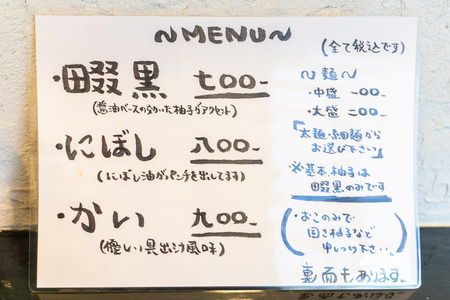 ～MENU～
(全て税込です)
・畷黒 七00-
(醤油ベースの効いた柚子がアクセント)
・にぼし 八00-
(にぼし油がパンチを出してます)
・かい 九00-
(優しい貝出汁風味)
～麺～
・中盛 一00-
・大盛 二00-
「太麺・細麺から
お選び下さい」
※基本柚子は
畷黒のみです
(おこのみで
固さ柚子など
申しつけ下さい。)
裏面もあります。